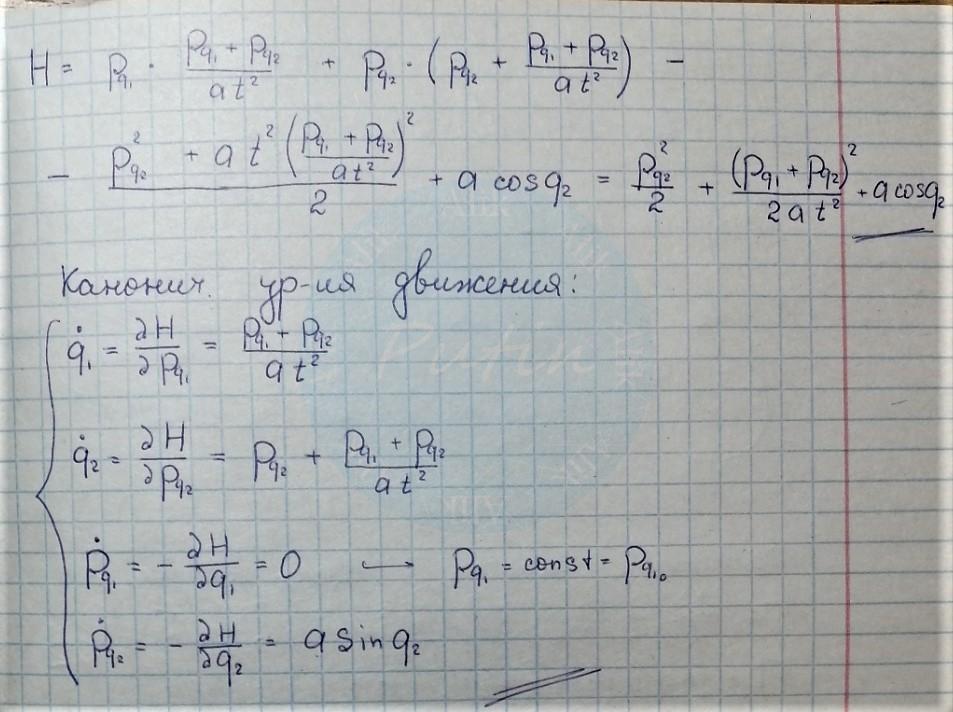 H = p_{q₁} · \frac{p_{q₁} + p_{q₂}}{a t²} + p_{q₂} · (p_{q₂} + \frac{p_{q₁} + p_{q₂}}{a t²}) −
− \frac{p_{q₂}² + a t² (\frac{p_{q₁} + p_{q₂}}{a t²})²}{2} + a cos q₂ = \frac{p_{q₂}²}{2} + \frac{(p_{q₁} + p_{q₂})²}{2 a t²} + a cos q₂
Канонич. ур-ия движения:
q̇₁ = \frac{∂H}{∂p_{q₁}} = \frac{p_{q₁} + p_{q₂}}{a t²}
q̇₂ = \frac{∂H}{∂p_{q₂}} = p_{q₂} + \frac{p_{q₁} + p_{q₂}}{a t²}
ṗ_{q₁} = − \frac{∂H}{∂q₁} = 0 → p_{q₁} = const = p_{q₁₀}
ṗ_{q₂} = − \frac{∂H}{∂q₂} = a sin q₂